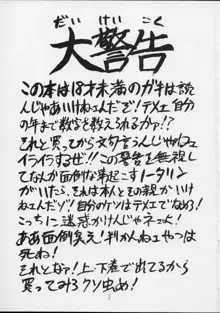 だいけいこく
大警告
この本は18才未満のガキは読
んじゃあいけねェんだぞ!テメェ自分
の年まで数字を数えられるかァ!?
それと買ってから文句言うんじゃねェ
イライラするぜ!!この警告を無視し
てなんか面倒な事起こすノータリン
がいたら、それは本人とその親がいけ
ねェんだゾ!自分のケツはテメエでなめろ!
こっちに迷惑かけんじゃネェよ!
ああ面倒臭え!判かんねェやつは
死ね!
それとなァ!上・下巻で出てるから
買ってみろクソ虫め!